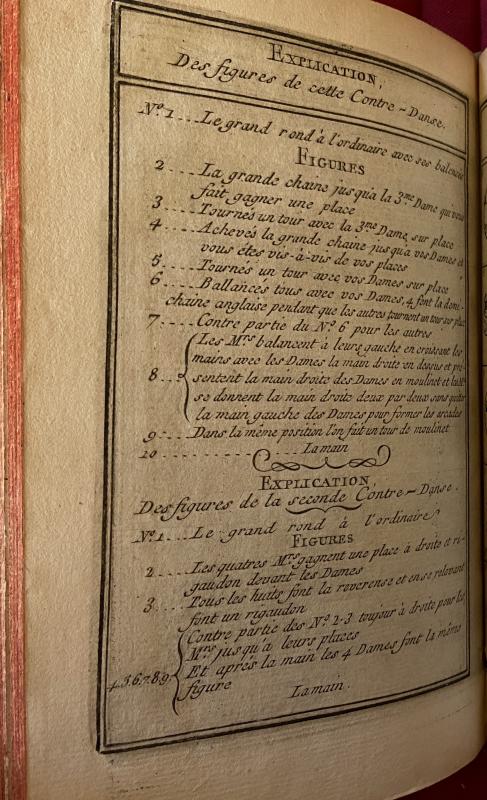 EXPLICATION,
Des figures de cette Contre-Danse.
Nº. 1 ... Le grand rond à l'ordinaire avec ses balencés
FIGURES
2 .... La grande chaine jusqu'a la 3.me Dame qui vous
fait gagner une place
3 .... Tournés un tour avec la 3.me Dame sur place
4 .... Achevés la grande chaine jusqu'a vos Dames et
vous étes vis-à-vis de vos places
5 .... Tournés un tour avec vos Dames sur place
6 .... Ballancés tous avec vos Dames, 4 font la demi-
chaine anglaise pendant que les autres tournent un tour sur place
7 .... Contre partie du Nº. 6 pour les autres
Les Mrs. balancent à leurs gauche en croissant les
mains avec les Dames la main droite en dessus et pré-
8 .. sentent la main droite des Dames en moulinet et les Mrs.
se donnent la main droite deux par deux sans quitter
la main gauche des Dames pour former les arcades
9 .... Dans la même position l'on fait un tour de moulinet
10 .................... La main
EXPLICATION,
Des figures de la seconde Contre-Danse.
Nº. 1 ... Le grand rond à l'ordinaire
FIGURES
2 .... Les quatres Mrs. gagnent une place à droite et ri-
gaudon devant les Dames
3 .... Tous les huits font la reverense et en se relevant
font un rigaudon
Contre partie des Nº. 2.3 toujour à droite pour les
Mrs. jusqu'a leurs places
4.5.6.7.8.9. Et après la main les 4 Dames font la même
figure La main.